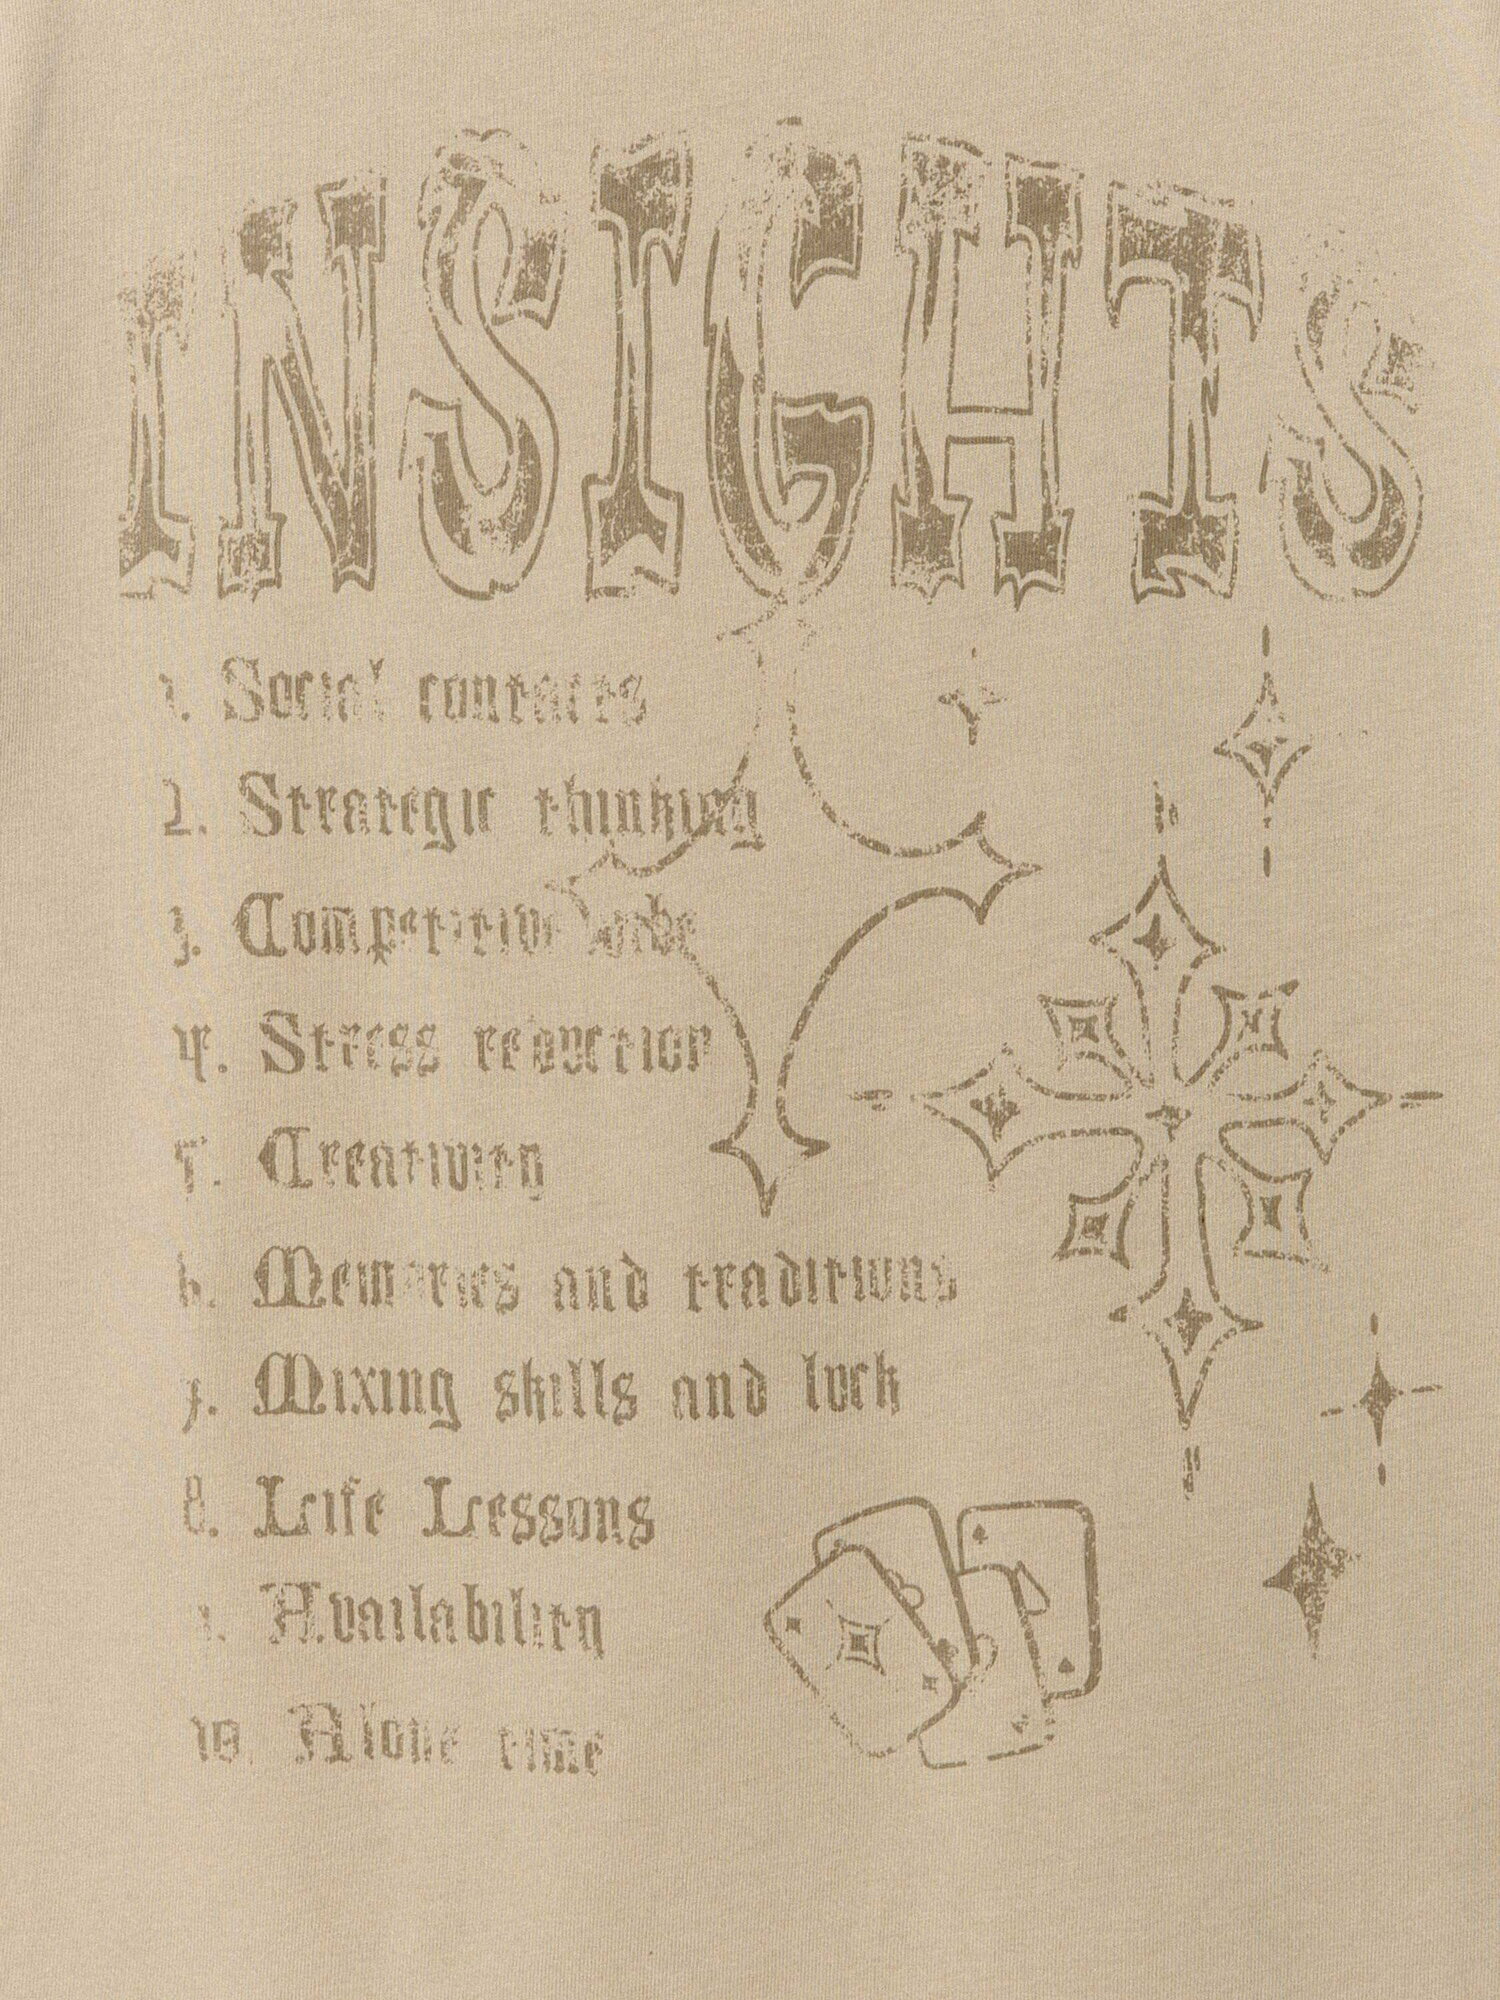 INSIGHTS
1. Social contacts
2. Strategic thinking
3. Competitive
4. Stress reduction
5. Creativity
6. Memories and traditions
7. Mixing skills and luck
8. Life Lessons
9. Availability
10. Alone time